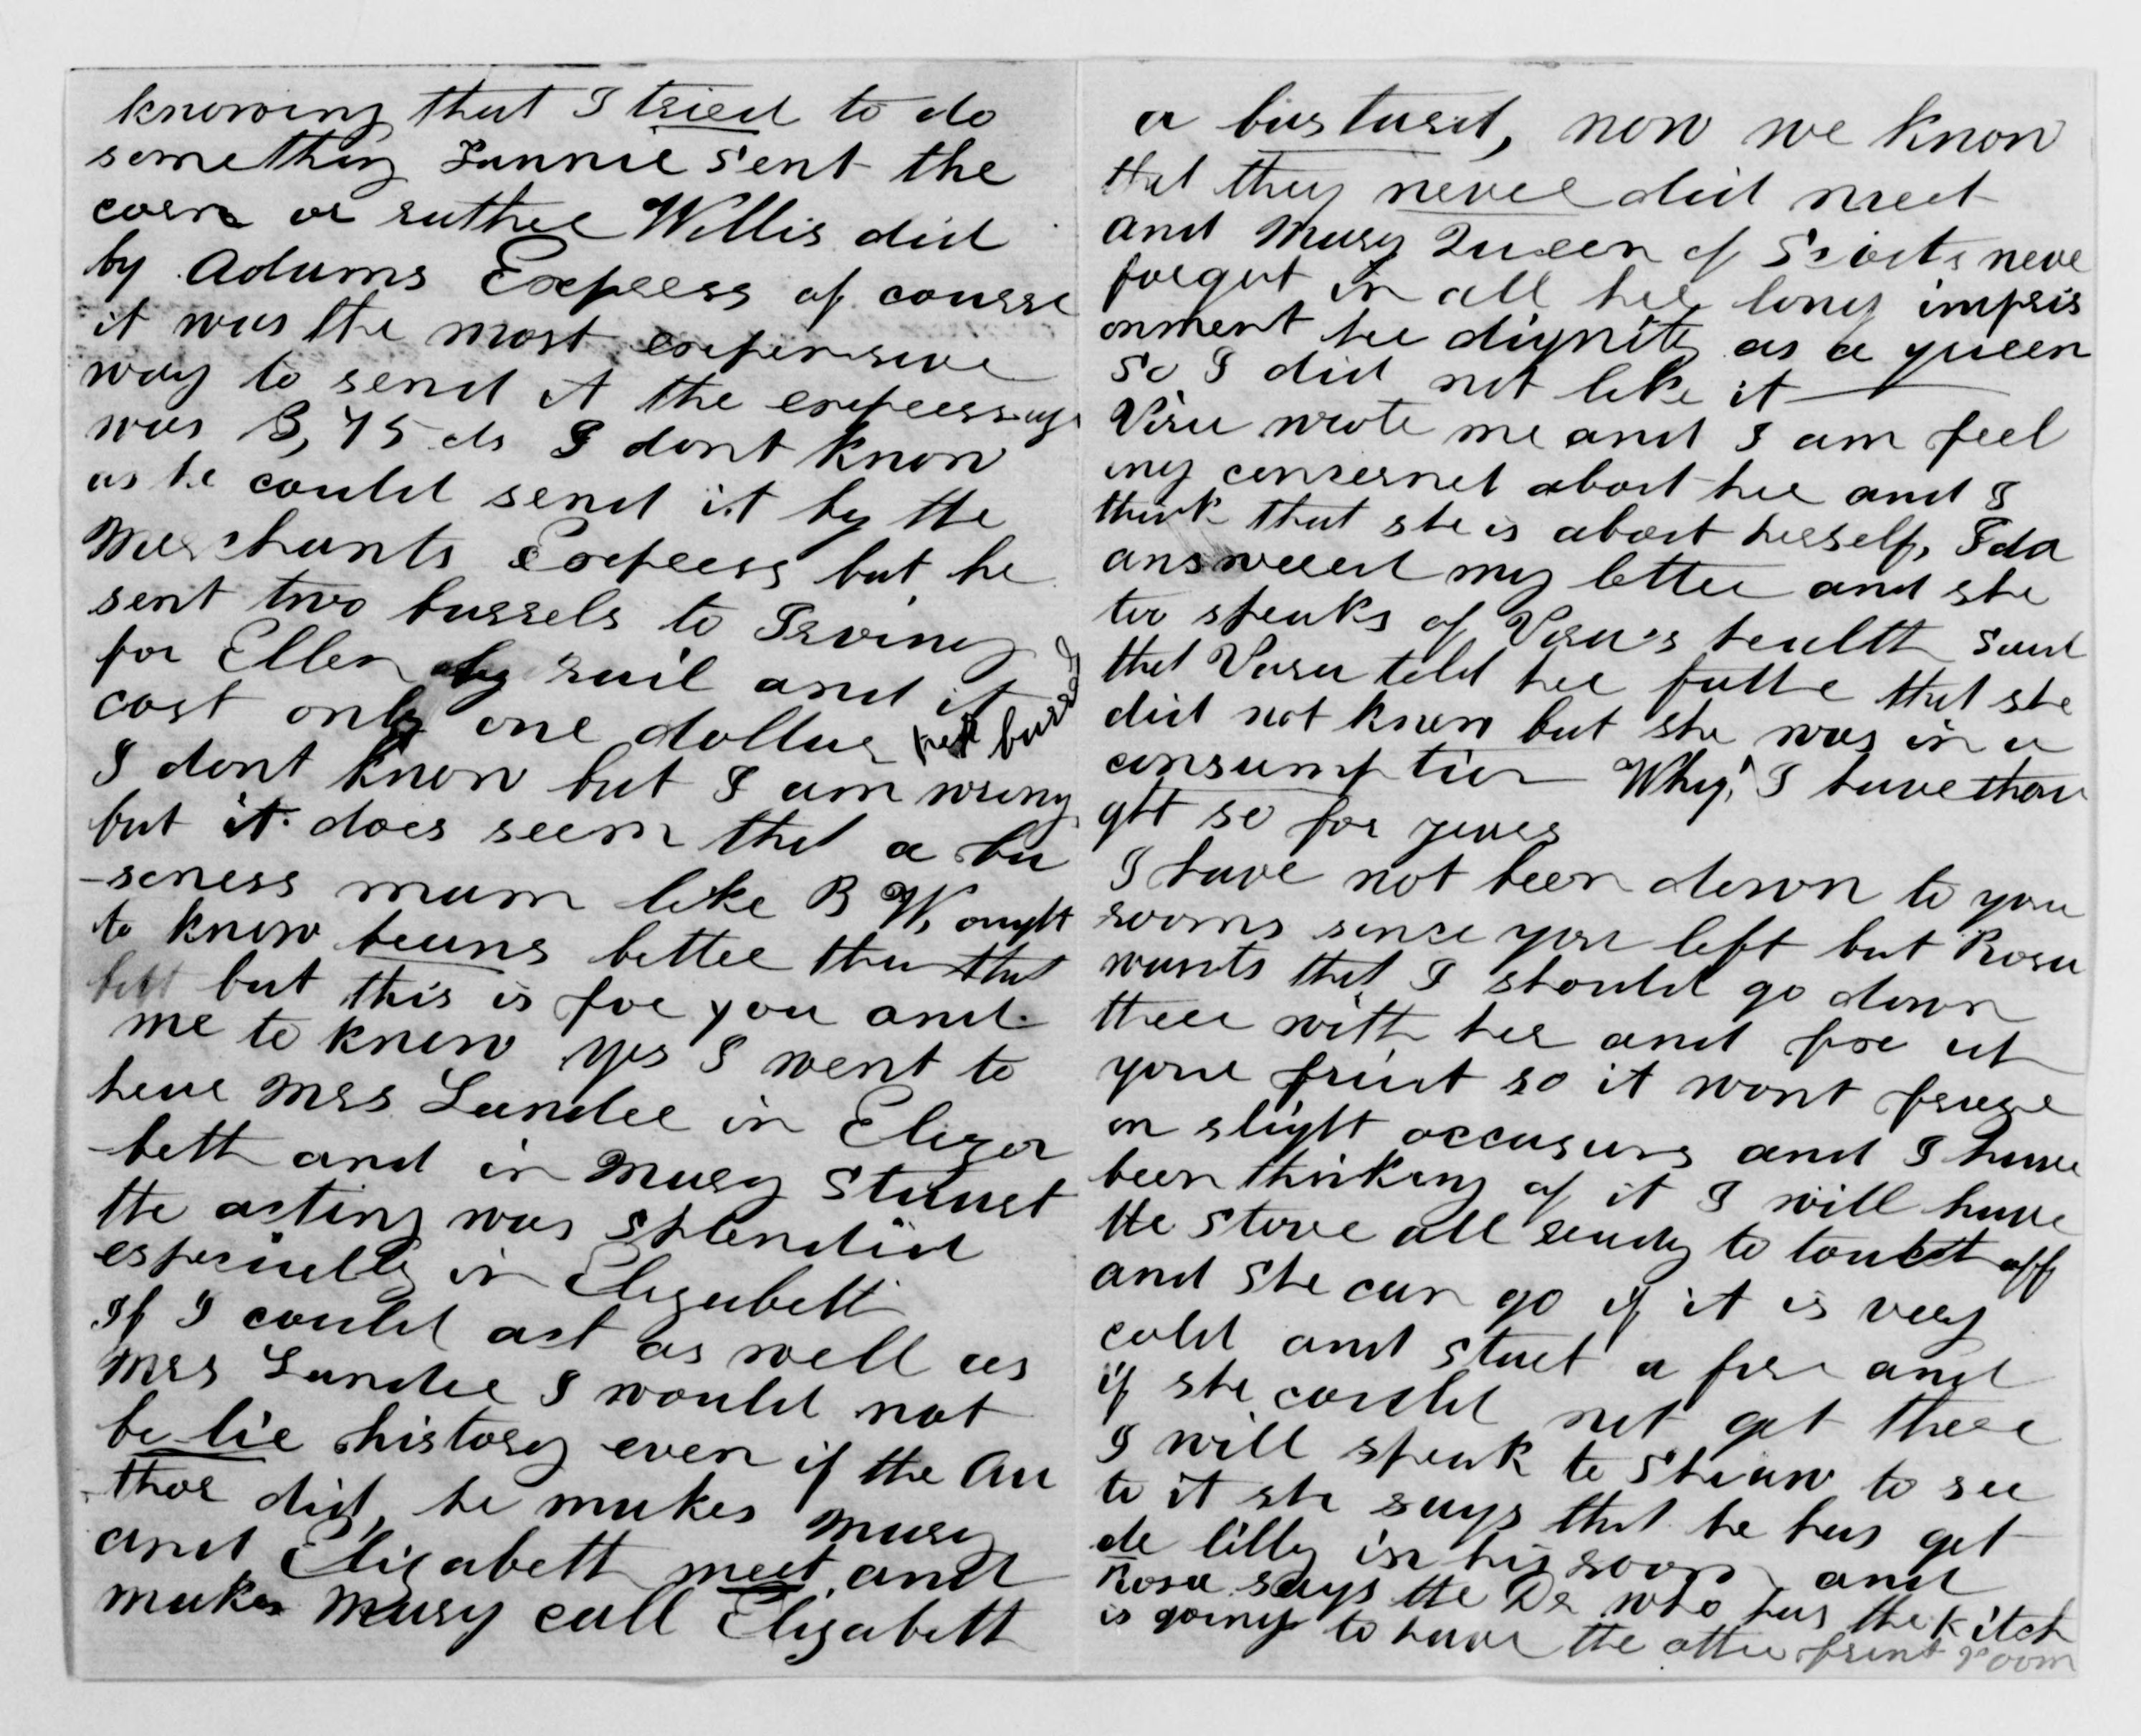 knowing that I tried to do
something Fannie sent the
corn or rather Willis did
by Adams Express of course
it was the most expensive
way to send it the expressage
was 3,75 cts I dont know
as he could send it by the
Merchants Express but he
sent two barrels to Irving
for Ellen by rail and it
cost only one dollar per barrel
I dont know but I am wrong
but it does seem that a bu
-seness mam like B W, ought
to know beans better than that
but this is for you and
me to know yes I went to
hear Mrs Lander in Eliza
beth and in Mary Stuart
the acting was splendid
especially in Elizabeth
If I could act as well as
Mrs Lander I would not
be lie history even if the Au
thor did, he makes Mary
and Elizabeth meet, and
makes Mary call Elizabeth
a bastard, now we know
that they never did meet
and Mary Queen of Scots neve
forgot in all her long impris
onment her dignity as a queen
so I did not like it
Vira wrote me and I am feel
ing concerned about her and I
think that she is about herself, Ida
answered my letter and she
too speaks of Vira's health said
that Vira told her father that she
did not know but she was in a
consumption Why! I have thou
ght so for years
I have not been down to you
rooms since you left but Rosa
wants that I should go down
there with her and fix up
your fruit so it wont freeze
on slight occasions and I have
been thinking of it I will have
the stove all ready to touch off
and she can go if it is very
cold and start a fire and
if she could not get there
I will speak to Shaw to see
to it she says that he has got
de lilly in his room and
Rosa says the Dr who has the kitch
is going to have the other front room